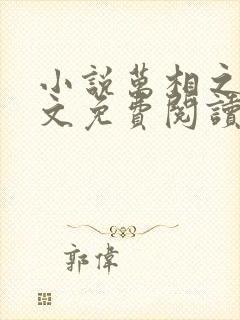 小説萬相之
文免費閱讀
郭偉